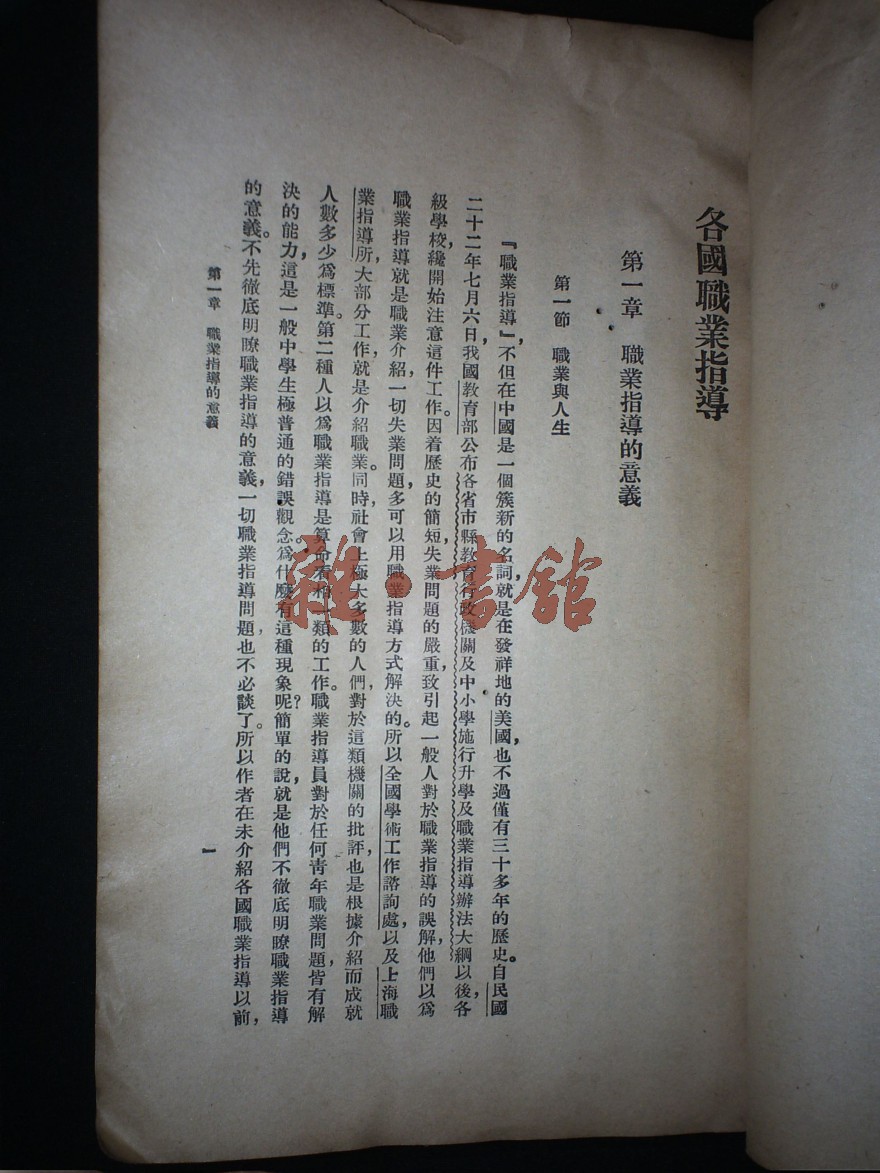 各國職業指導
第一章　職業指導的意義
第一節　職業與人生
『職業指導』，不但在中國是一個簇新的名詞，就是在發祥地的美國，也不過僅有三十多年的歷史。自民國
二十二年七月六日，我國教育部公布各省市縣教育行政機關及中小學施行升學及職業指導辦法大綱以後，各
級學校纔開始注意這件工作。因着歷史的簡短，失業問題的嚴重，致引起一般人對於職業指導的誤解，他們以爲
職業指導就是職業介紹，一切失業問題，多可以用職業指導方式解決的。所以全國學術工作諮詢處，以及上海職
業指導所，大部分工作，就是介紹職業。同時，社會上極大多數的人們，對於這類機關的批評，也是根據介紹而成就
人數多少爲標準。第二種人以爲職業指導是算命看相一類的工作。職業指導員對於任何青年職業問題，皆有解
決的能力，這是一般中學生極普通的錯誤觀念。爲什麼有這種現象呢？簡單的說，就是他們不徹底明瞭職業指導
的意義。不先徹底明瞭職業指導的意義，一切職業指導問題，也不必談了。所以作者在未介紹各國職業指導以前，
第一章　職業指導的意義
一
雜·書館